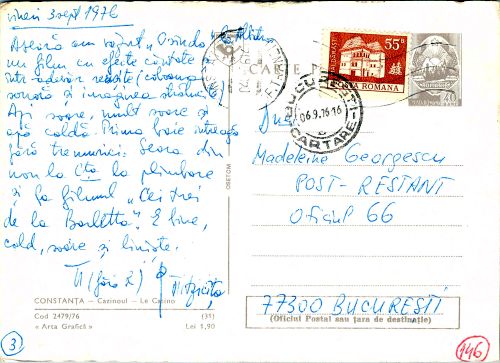 vineri 3 sept 1976
Aseară am văzut „Osînda" la
un film cu efecte căutate
într-adevăr reușite (coloana
sonoră și imaginea
Azi soare, mult soare și
apă caldă. Prima baie întreagă
fără tremurici. Seara din
nou la Cța la plimbare
și la filmul „Cei trei
de la Barletta". E bine,
cald, soare și liniște.
CONSTANȚA – Cazinoul – Le Casino
Cod 2479/76 (31)
« Arta Grafică » Lei 1,90
3
OBETOM
CARTE
55 B
POSTA ROMANA
40
BUCUREȘTI
06.9.76-16
CARTARE
Madeleine Georgescu
POST-RESTANT
Oficiul 66
77300 BUCUREȘTI
(Oficiul Postal sau țara de destinație)
146